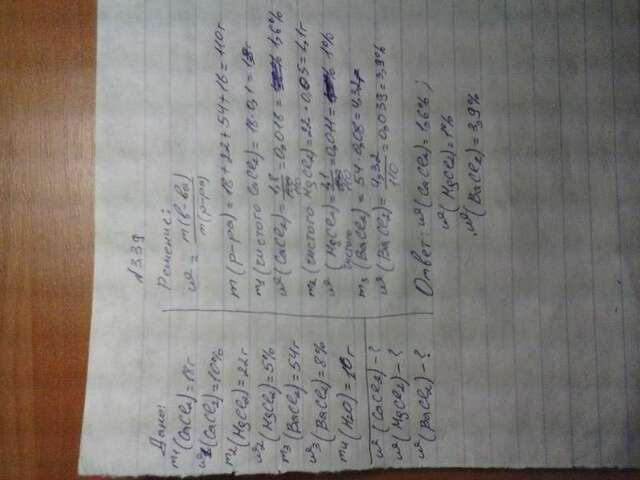 №339
Дано:
m₁(CaCl₂)=18г
ω₁(CaCl₂)=10%
m₂(MgCl₂)=22г
ω₂(MgCl₂)=5%
m₃(BaCl₂)=54г
ω₃(BaCl₂)=8%
m₄(H₂O)=16г
ω(CaCl₂)-?
ω(MgCl₂)-?
ω(BaCl₂)-?
Решение:
ω = m(в-ва)/m(р-ра)
m(р-ра)=18+22+54+16=110г
m₁(чистого CaCl₂)=18·0,1=1,8г
ω(CaCl₂)=1,8/110=0,016=1,6%
m₂(чистого MgCl₂)=22·0,05=1,1г
ω(MgCl₂)=1,1/110=0,011=1%
m₃(чистого BaCl₂)=54·0,08=4,32г
ω(BaCl₂)=4,32/110=0,039=3,9%
Ответ: ω(CaCl₂)=1,6%;
ω(MgCl₂)=1%
ω(BaCl₂)=3,9%